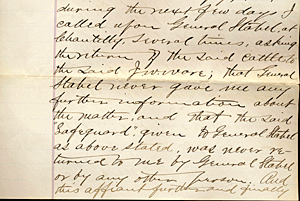 during the next few days I
called upon General Stahel, at
Chantilly, several times, asking
the return of the said cattle to
the said J. ; that General
Stahel never gave me any
further information about
the matter, and that the said
"Safeguard" given to General Stahel
as above stated, was never re-
turned to me by General Stahel
or by any other person. And
this affiant further and finally